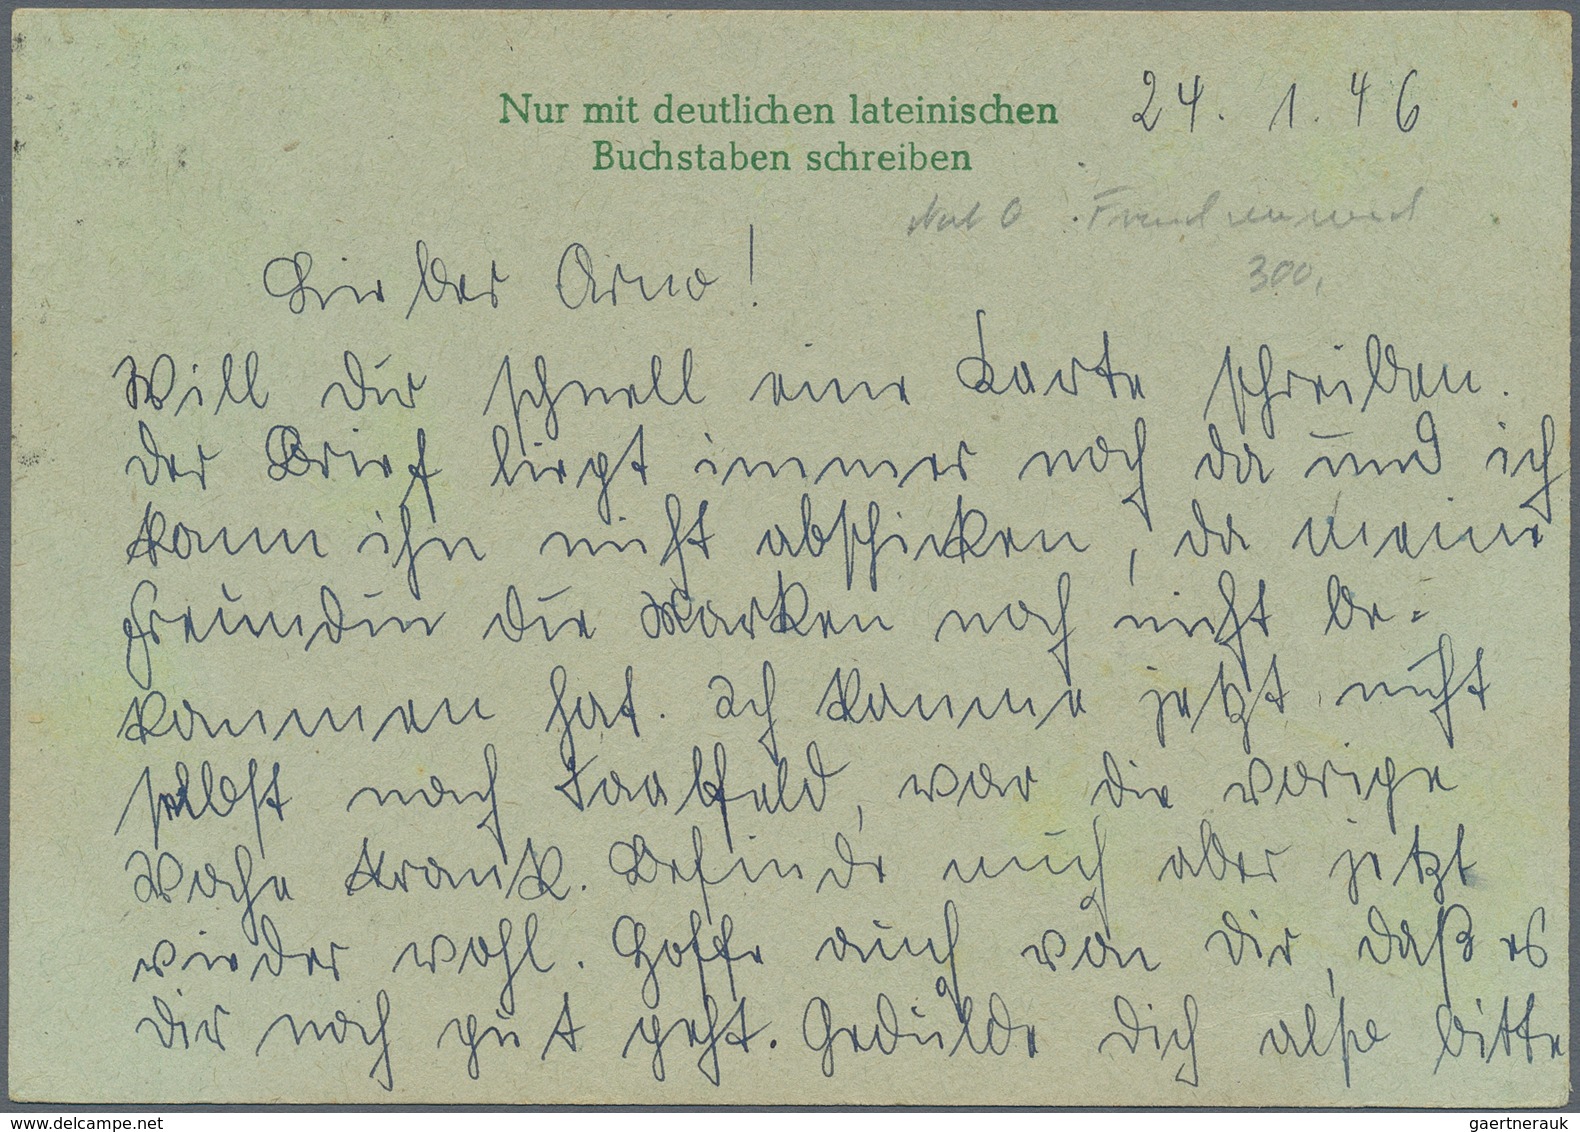 Nur mit deutlichen lateinischen
Buchstaben schreiben
24. 1. 46
300,
Lieber Arno!
Will dir schnell eine Karte schreiben.
Der Brief liegt immer noch da und ich
kann ihn nicht abschicken, da meine
Freundin die Marken noch nicht be-
kommen hat. Ich komme jetzt nicht
selbst nach Saalfeld, war die vorige
Woche krank. Befinde mich aber jetzt
wieder wohl. Hoffe auch von dir, daß es
dir noch gut geht. Gedulde dich also bitte
delcampe.net
gaertnerauk